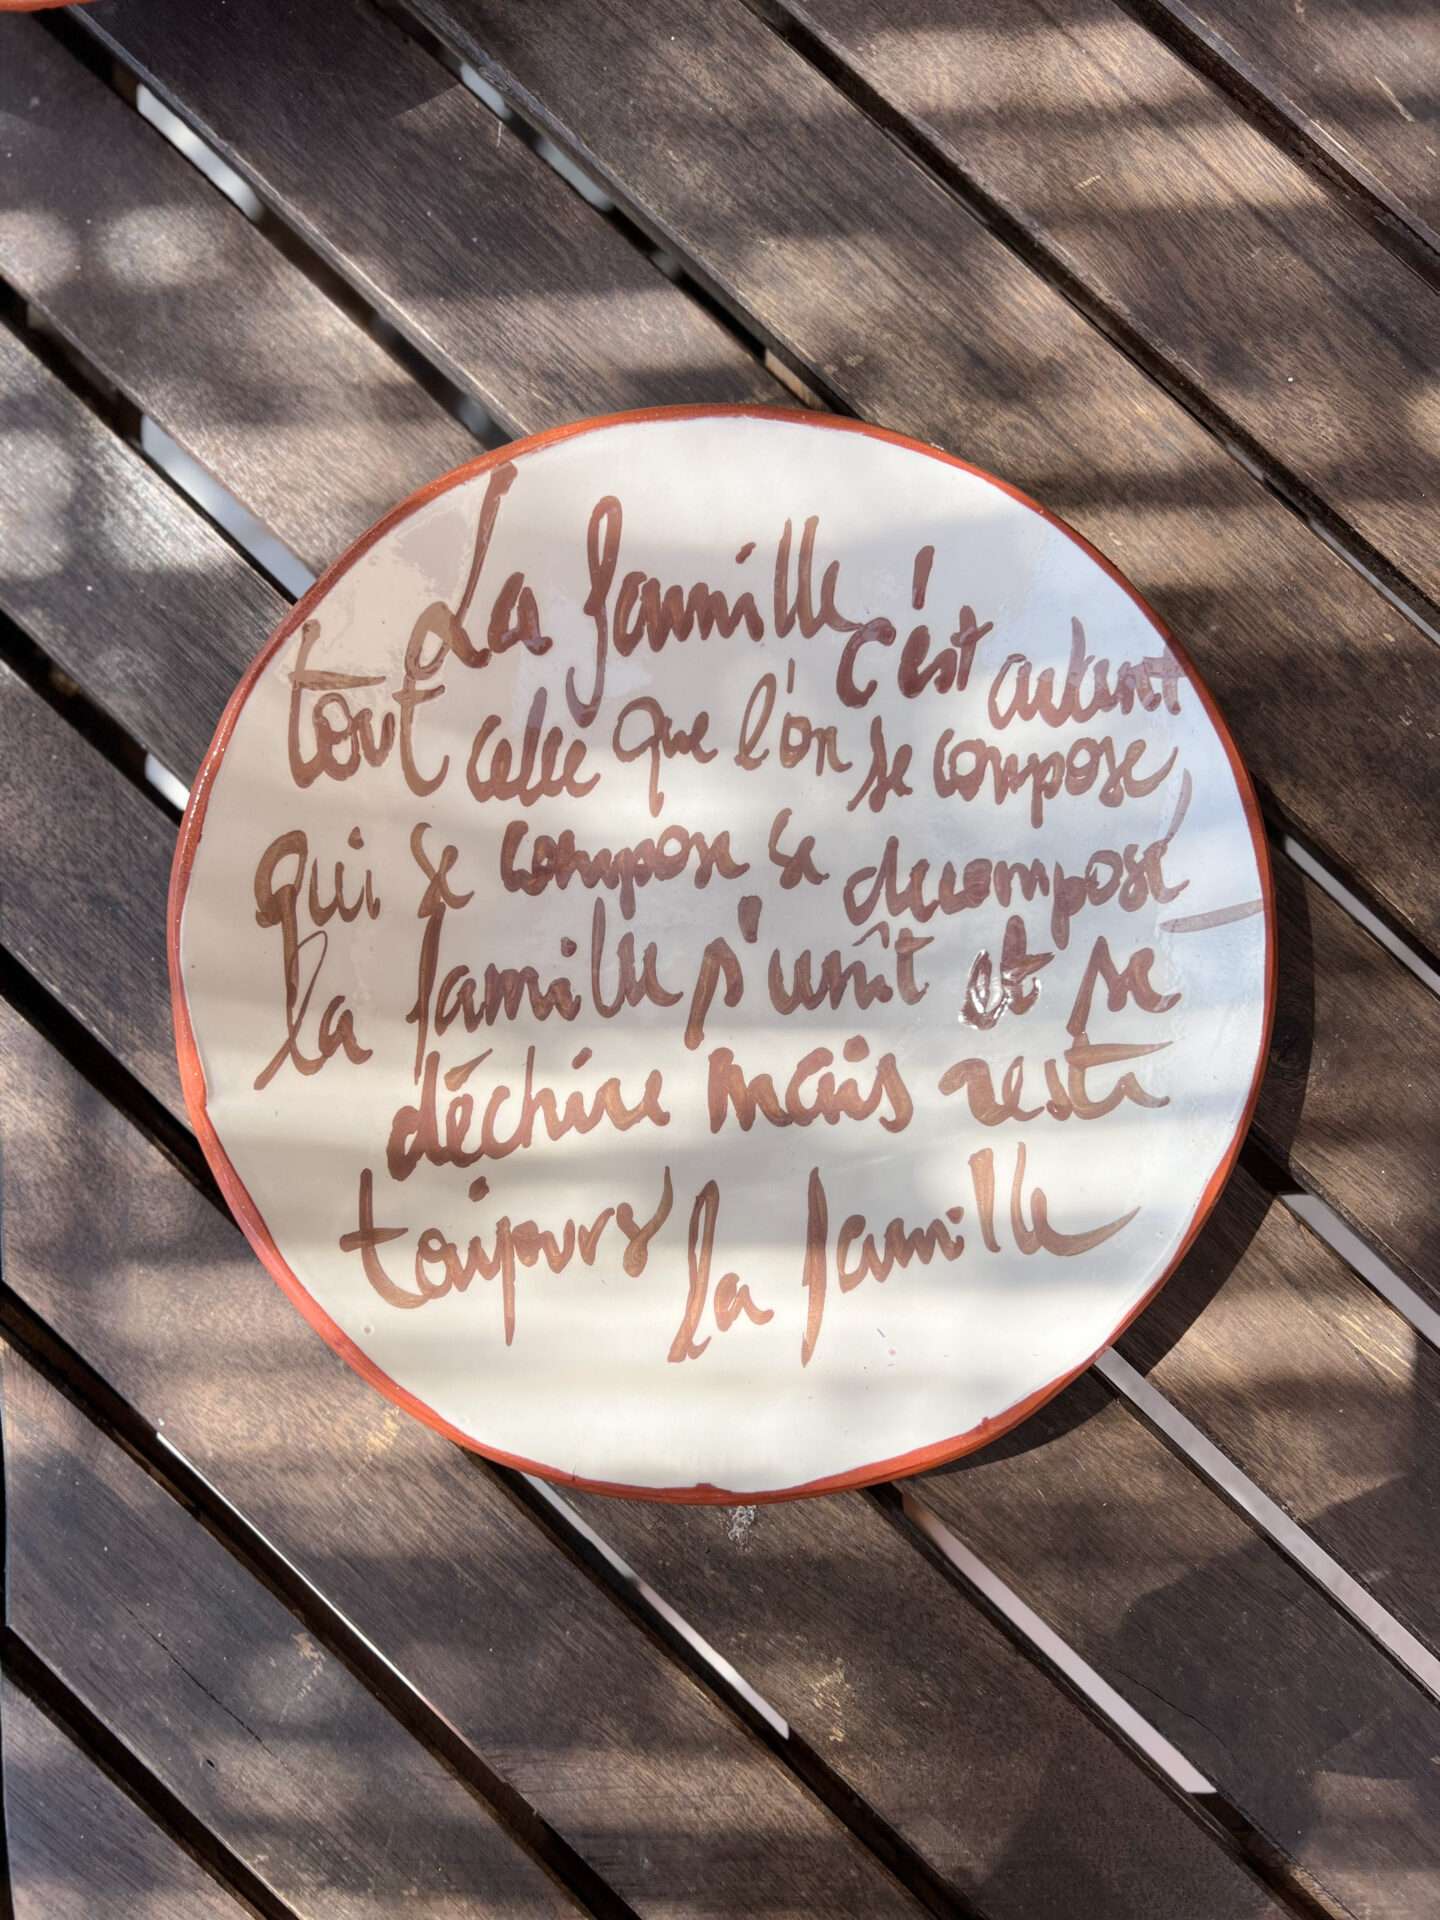 La famille c'est autant
tout celle que l'on se compose
qui se compose se décompose
la famille s'unît et se
déchire mais reste
toujours la famille